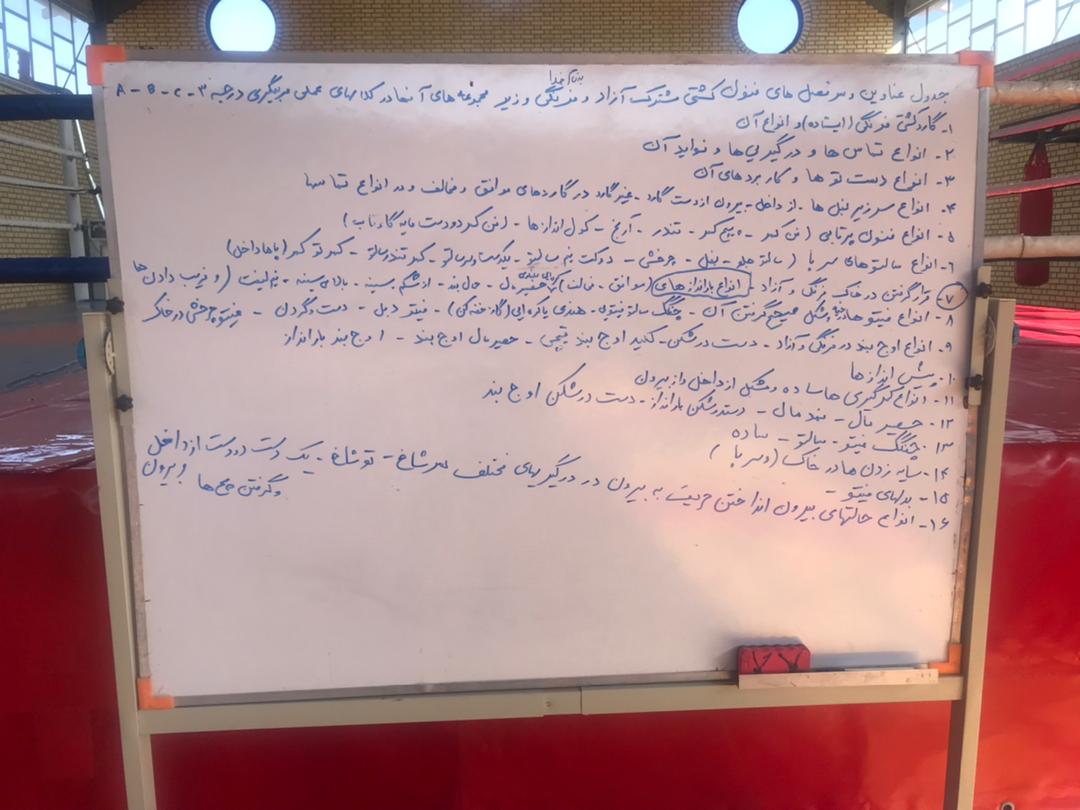 بنام خدا
جدول عناوین و سر فصل های فنون کشتی مشترک آزاد و فرنگی و زیر مجموعه های آنها در کلاسهای عملی مربیگری درجه ۳ - A - B - C
۱- گارد کشتی فرنگی (ایستاده) و انواع آن
۲- انواع تماس ها و درگیری ها و فواید آن
۳- انواع دست تو ها و کاربردهای آن
۴- انواع سر زیر بغل ها - از داخل - بیرون از دست گارد - غیر گارد در گاردهای موافق و مخالف و در انواع تماسها
۵- انواع فنون پرتابی (فن کمر - پیچ کمر - تندر - آرنج - کول اندازها - (فن کمر دو دست مایه گاو تاب)
۶- انواع سالتوهای سر پا (سالتو جلو - بغل - چرخشی - سوکت نیم سالتو - یکدست و سر سالتو - کمر تندر سالتو - کمر تو کمر (پاها داخل)
۷- قرار گرفتن در خاک فرنگی و آزاد - انواع بارانداز های (موافق - مخالف) حصیر مال - حمال بند - از شکم بسینه - بالای سینه - نیم لیفت (و فریب دادن ها
۸- انواع فیتو ها ساده و مشکل صحیح گرفتن آن - چنگک سالتو فیتوی - هندی یا کره ایی (گاز خفه کن) - فیتو دبل - دست و گردن - فیتو چرخشی در خاک
۹- انواع اوج بند در فرنگی و آزاد - دست در شکن - کلید اوج بند قیچی - حصیر مال اوج بند - اوج بند بارانداز
۱۰- پیش اندازها
۱۱- انواع کمرگیری ها ساده و مشکل از داخل و از بیرون
۱۲- حصیر مال - نمد مال - دست در شکن بارانداز - دست در شکن اوج بند
۱۳- چنگک فیتو - سالتو - ساده
۱۴- سایه زدن ها در خاک (و سر پا)
۱۵- بدلهای فیتو -
۱۶- انواع حالتهای بیرون انداختن حریف به بیرون در درگیریهای مختلف سر شاخ - تو شاخ - یک دست دو دست از داخل و بیرون
و گرفتن مچ ها